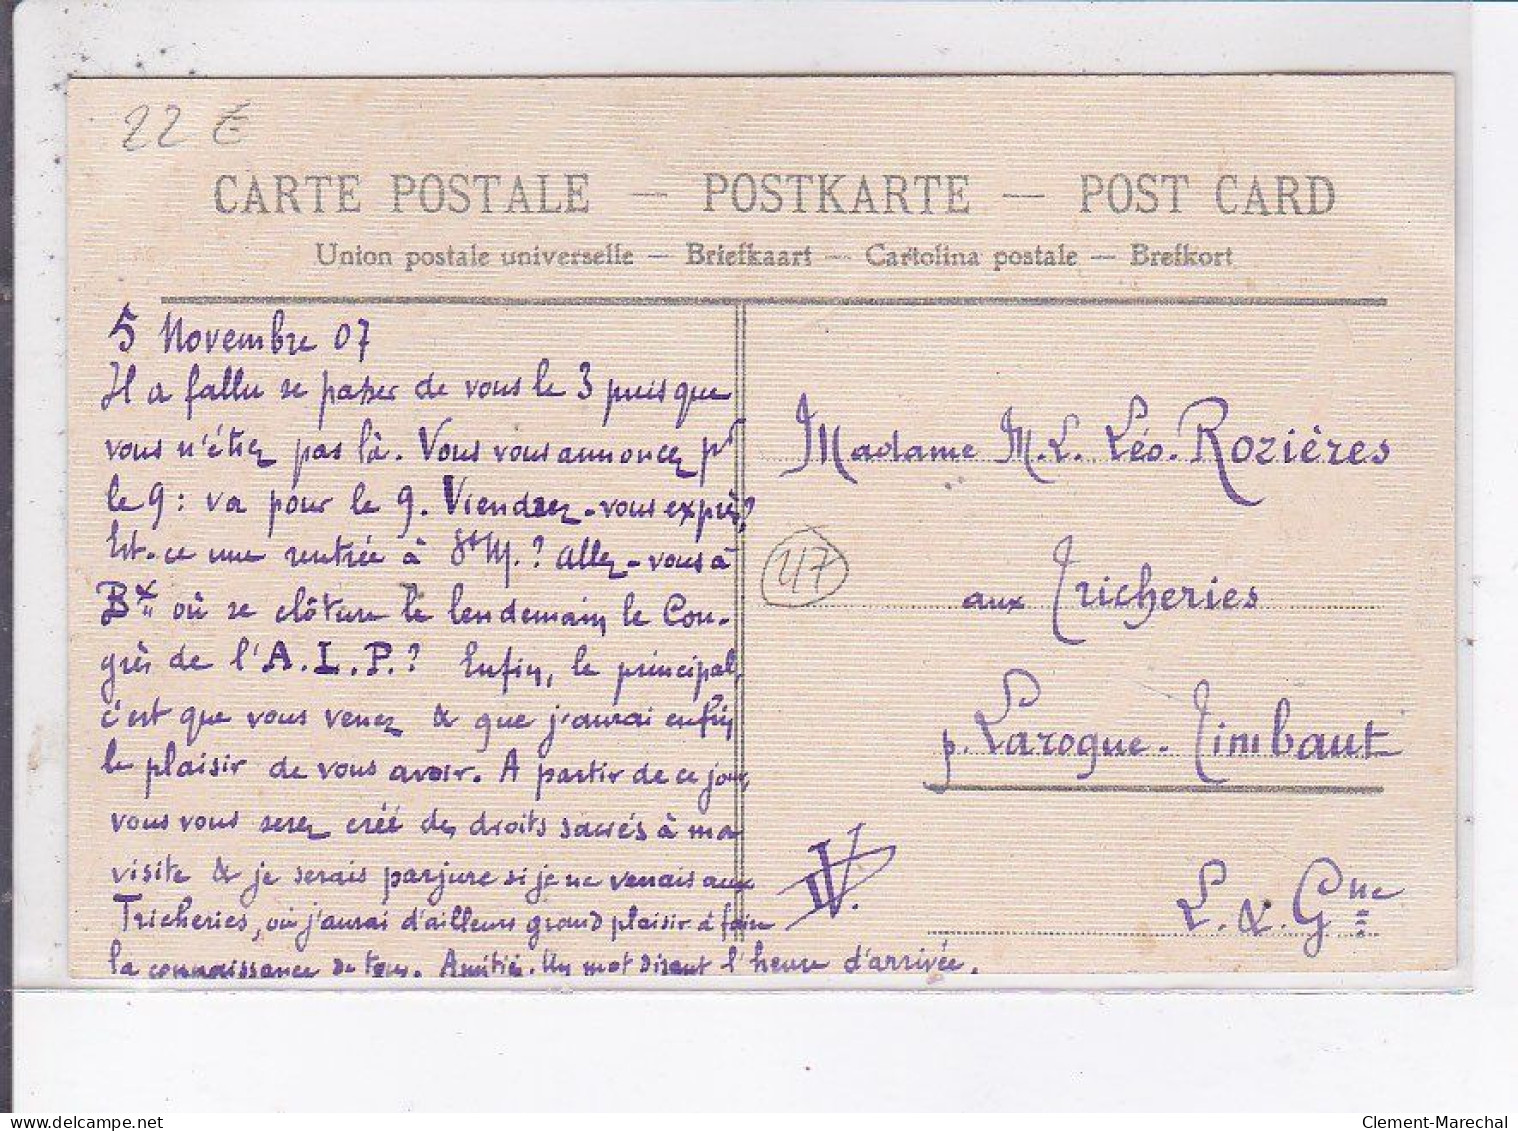 22 €
CARTE POSTALE — POSTKARTE — POST CARD
Union postale universelle — Briefkaart — Cartolina postale — Brefkort
5 Novembre 07
Il a fallu se passer de vous le 3 puisque
vous n'étiez pas là. Vous vous annoncez pr
le 9 : va pour le 9. Viendrez-vous exprès ?
Est-ce une rentrée à St M. ? Allez-vous à
Bx où se clôture le lendemain le Con-
grès de l'A.L.P. ? Enfin, le principal,
c'est que vous venez & que j'aurai enfin
le plaisir de vous avoir. A partir de ce jour,
vous vous serez créé des droits sacrés à ma
visite & je serais parjure si je ne venais aux
Tricheries, où j'aurai d'ailleurs grand plaisir à faire
la connaissance de tous. Amitiés. Un mot disant l'heure d'arrivée.
Madame M. L. Léo. Rozières
47
aux Tricheries
p. Laroque-Timbaut
L. & Gne
Clement-Marechal
delcampe.net